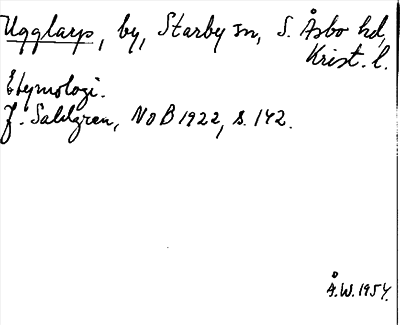 Ugglarp, by, Starby sn, S. Åsbo hd,
Krist. l.
Etymologi.
J. Sahlgren, NoB 1922, s. 142.
Å.W. 1954.